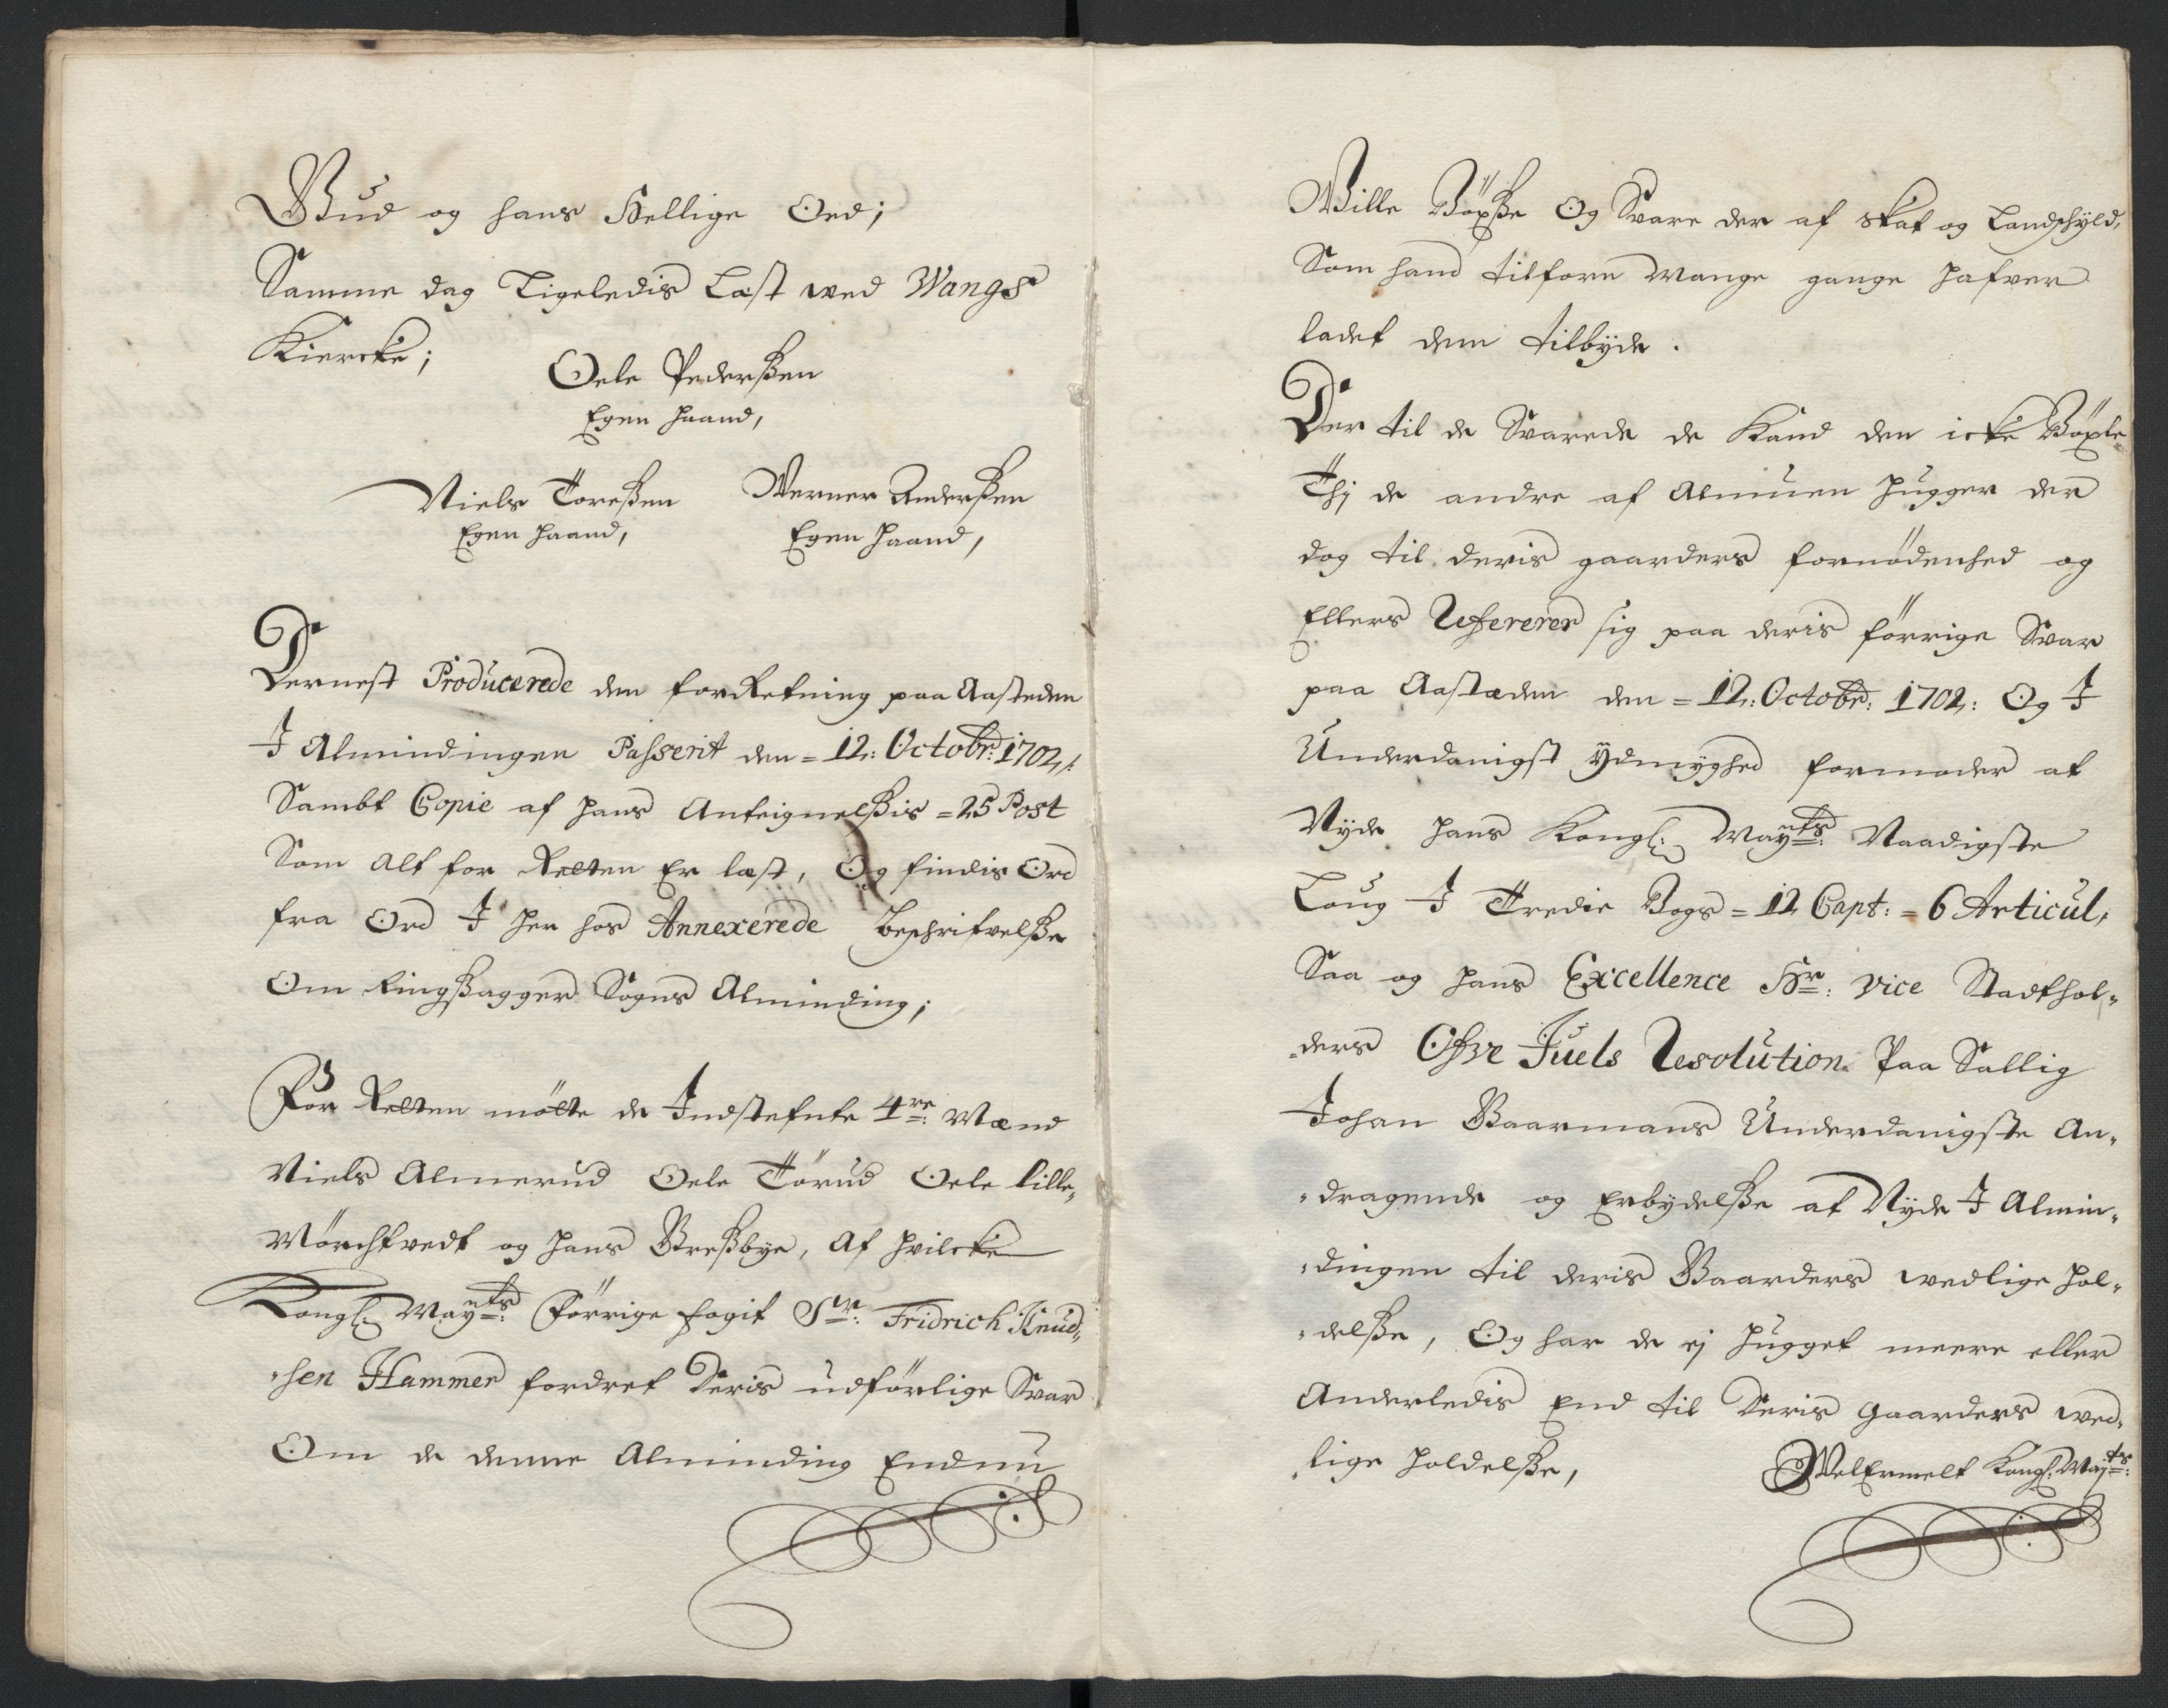 Gud og hans Hellige Ord;
Samme dag Ligeledis Læst wed Wangs
Kiercke;
Oele Pederßen
Egen Haand,
Niels Toreßen Werner Anderßen
Egen Haand, Egen Haand,
Dernest Producerede den forRetning paa Aasteden
I Almindingen Passerit den = 12: Octobr: 1702,:
Sambt Copie af hans Anteignelßis = 25 Post
Som alt for Retten Er læst, Og findis Ord
fra Ord I her hos Annexerede beschrifvelße
Om Ringßagger Sogns Alminding;
For Retten mötte de Indstefnte 4re: Mænd
Niels Almerud Oele Törud Oele Lille„
Mörchtvedt og Hans Breßbye, Af hvilcke
Kongl: Mayts: Förrige fogit Sr: Fridrich Knud„
„sen Hammer fordret Deris udförlige Svar
Om de denne Alminding Endnu
Wille Böxße Og Svare der af skat og Landschyld,
Som hand tilforn Mange gange hafver
ladet dem tilbÿde.
Der til de Svarede de Kand den icke Böxle
Thj de andre af Almuen Hugger der
dog til deris gaarders fornödenhed og
Ellers Refererer sig paa deris förrige Svar
paa Aastæden den = 12: Octobr: 1702: Og I
Underdanigst Ydmÿghed formoder at
Nÿde Hans Kongl: Mayts: Naadigste
Loug I Tredie Bogs = 12 Capt: = 6 Articul,
Saa og Hans Excellence Hr: Vice Stadthol„
„ders Ofve Juels Resolution Paa Sallig
Johan Gaarmans Underdanigste An„
„dragende og Erbydelße at Nÿde I Almin„
„dingen til deris Gaarders wedlige Hol„
„delße, Og har de ej Hugget meere eller
Anderledis End til Deris Gaarders wed„
„lige Holdelße, WelErmelt Kongl: Mayts: